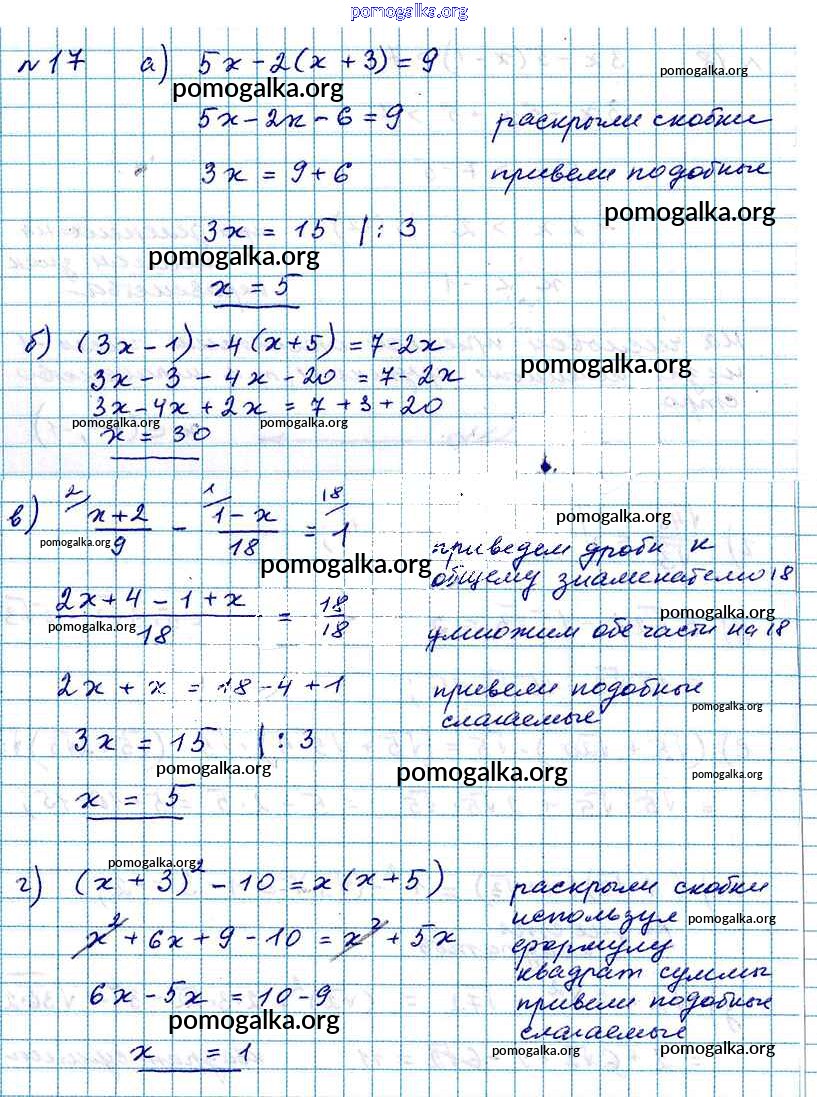 pomogalka.org
№17 а) 5x - 2(x + 3) = 9
pomogalka.org
pomogalka.org
5x - 2x - 6 = 9 раскрыли скобки
3x = 9 + 6 привели подобные
pomogalka.org
3x = 15 | : 3
pomogalka.org
x = 5
б) (3x - 1) - 4(x + 5) = 7 - 2x
pomogalka.org
3x - 3 - 4x - 20 = 7 - 2x
3x - 4x + 2x = 7 + 3 + 20
pomogalka.org pomogalka.org
x = 30
в) 2/ x+2 / 9 - 1/ 1-x / 18 = 18/ 1
pomogalka.org
pomogalka.org
pomogalka.org
приведем дроби к
общему знаменателю 18
2x + 4 - 1 + x / 18 = 18 / 18
pomogalka.org pomogalka.org
умножим обе части на 18
2x + x = 18 - 4 + 1 привели подобные
слагаемые
pomogalka.org
3x = 15 | : 3
pomogalka.org pomogalka.org pomogalka.org
x = 5
pomogalka.org
г) (x + 3)² - 10 = x(x + 5) раскрыли скобки
используя pomogalka.org
x² + 6x + 9 - 10 = x² + 5x формулу
квадрат суммы
6x - 5x = 10 - 9 привели подобные
pomogalka.org слагаемые
x = 1 pomogalka.org pomogalka.org